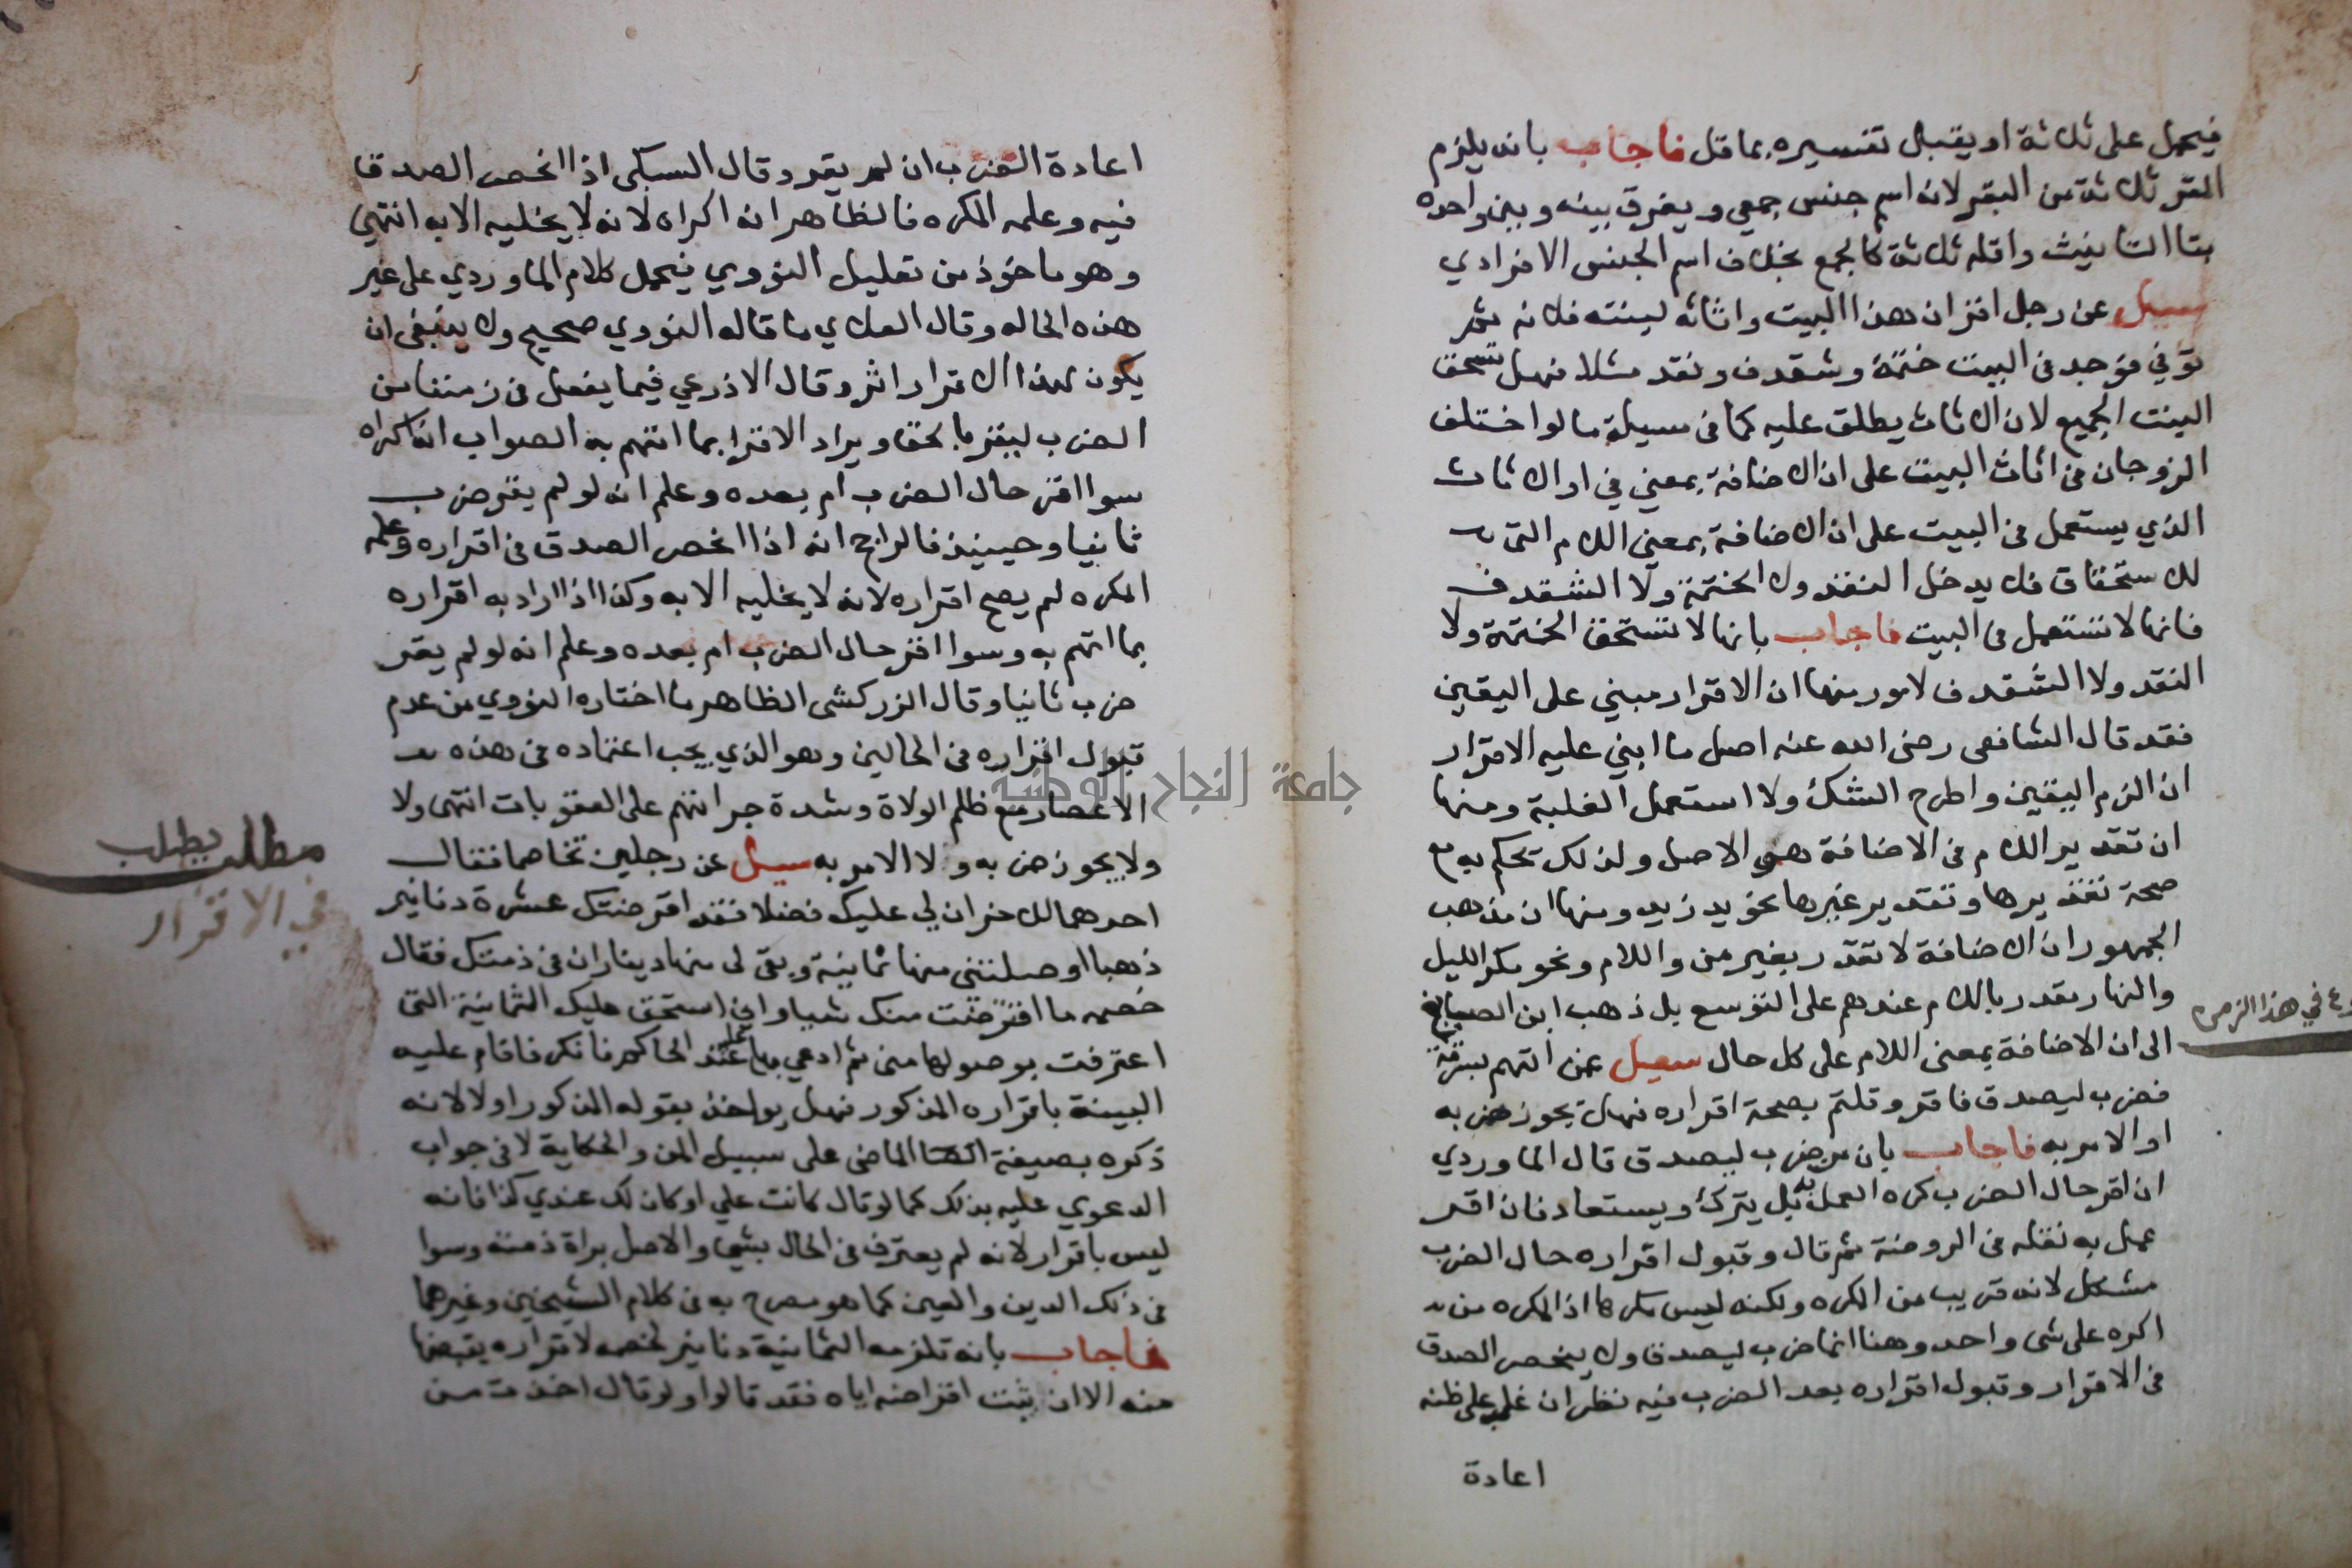 فيحمل على ثلاثة او يقبل تفسيره بما قل فاجاب بانه يلزم
المقر ثلاثة من البقر لانه اسم جنس جمعي ويفرق بينه وبين واحده
بتا التانيث واقله ثلاثة كالجمع بخلاف اسم الجنس الافرادي
سيل عن رجل اقر ان هذا البيت واثاثه لبنته فلانه ثم
توفي فوجد في البيت ختمة وشقدف ونقد مثلا فهل تستحق
البنت الجميع لان الاثاث يطلق عليه كما في مسيلة ما لو اختلف
الزوجان في اثاث البيت على ان الاضافة بمعني في او الاثاث
الذي يستعمل في البيت على ان الاضافة بمعني اللام التي
للاستحقاق فلا يدخل النقد ولا الختمة ولا الشقدف
فانها لا تستعمل في البيت فاجاب بانها لا تستحق الختمة ولا
النقد ولا الشقدف لامور منها ان الاقرار مبني على اليقين
فقد قال الشافعي رضي الله عنه اصل ما ابني عليه الاقرار
ان الزم اليقين واطرح الشك ولا استعمل الغلبة ومنها
ان تقدير اللام في الاضافة هي الاصل ولذلك تحكم به مع
صحة تقديرها وتقدير غيرها نحو يد زيد ومنها ان مذهب
الجمهور ان الاضافة لا تقدر بغير من واللام ونحو مكر الليل
والنهار يقدر باللام عندهم على التوسع بل ذهب ابن الصايغ
الى ان الاضافة بمعنى اللام على كل حال سيل عمن اتهم بسرقة
فضرب ليصدق فاقر وقلتم بصحة اقراره فهل يجوز ضربه
او الامر به فاجاب بان من ضرب ليصدق قال الماوردي
ان اقر حال الضرب كره العمل به بل يترك ويستعاد فان اقر
عمل به نقله في الروضة ثم قال وقبول اقراره حال الضرب
مشكل لانه قريب من المكره ولكنه ليس مكرها اذ المكره من
اكره على شي واحد وهنا انما ضرب ليصدق ولا ينحصر الصدق
في الاقرار وقبول اقراره بعد الضرب فيه نظر ان غلب على ظنه
اعادة
في هذا الزمن
اعادة الضرب ان لم يقر وقال السبكي اذا انحصر الصدق
فيه وعلمه المكره فالظاهر انه اكراه لانه لا يخليه الا به انتهى
وهو ماخوذ من تعليل النووي فيحمل كلام الماوردي على غير
هذه الحاله وقال العلاي ما قاله النووي صحيح ولا ينبغي ان
يكون لهذا الاقرار اثر وقال الاذرعي فيما يفعل في زمننا من
الضرب ليقر بالحق ويراد الاقرار بما اتهم به الصواب انه اكراه
سوا اقر حال الضرب ام بعده وعلم انه لو لم يقر ضرب
ثانيا وحينيذ فالراجح انه اذا انحصر الصدق في اقراره وعلمه
المكره لم يصح اقراره لانه لا يخليه الا به وكذا اذا اراد به اقراره
بما اتهم به وسوا اقر حال الضرب ام بعده وعلم انه لو لم يقر
ضرب ثانيا وقال الزركشي الظاهر ما اختاره النووي من عدم
قبول اقراره في الحالين وهو الذي يجب اعتماده في هذه
الاعصار مع ظلم الولاة وشدة جراتهم على العقوبات انتهى ولا
ولا يجوز ضربه ولا الامر به سيل عن رجلين تخاصما فقال
احدهما للاخر ان لي عليك فضلا فقد اقرضتك عشرة دنانير
ذهبا اوصلتني منها ثمانية وبقي لي منها ديناران في ذمتك فقال
خصمه ما اقترضت منك شيا واني استحق عليك الثمانية التي
اعترفت بوصولها مني ثم ادعي بها عليه عند الحاكم فانكر فاقام عليه
البينة باقراره المذكور فهل يواخذ بقوله المذكور اولا لانه
ذكره بصيغة الماضي على سبيل المن والحكاية لا في جواب
الدعوي عليه بذلك كما لو قال كانت علي او كان لك عندي كذا فانه
ليس باقرار لانه لم يعترف في الحال بشي والاصل براة ذمته وسوا
في ذلك الدين والعين كما هو مصرح به في كلام الشيخين وغيرهما
فاجاب بانه تلزمه الثمانية دنانير لخصمه لاقراره بقبضها
منه الا ان يثبت اقراضه اياه فقد قالوا ولو قال اخذت من
مطلب يطلب
في الاقرار
جامعة النجاح الوطنية